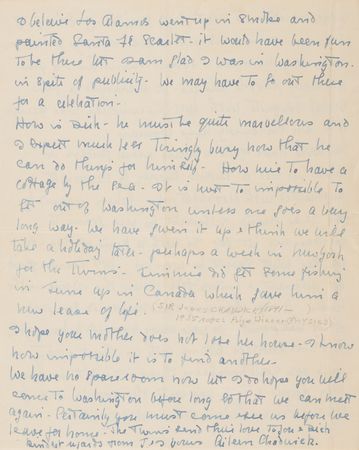 I believe Los Alamos went up in smoke and
painted Santa Fe Scarlet - it would have been fun
to be there but I am glad I was in Washington.
in spite of publicity. We may have to go out there
for a celebration -
How is Dick - he must be quite marvellous and
I expect much less tiringly busy now that he
can do things for himself. How nice to have a
cottage by the sea. It is next to impossible to
get out of Washington unless one goes a very
long way. We have given it up & think we will
take a holiday later - perhaps a week in New York
for the Twins. Jimmie did get some fishing
in June up in Canada which gave him a
new lease of life. (SIR JAMES CHADWICK
1935 Nobel Prize Physics)
I hope your mother does not lose her house - I know
how impossible it is to find another.
We have no spare room now but I do hope you will
come to Washington before long so that we can meet
again. Certainly you must come & see us before we
leave for home. The Twins send their love to you &
kindest regards from J. & yours Aileen Chadwick.